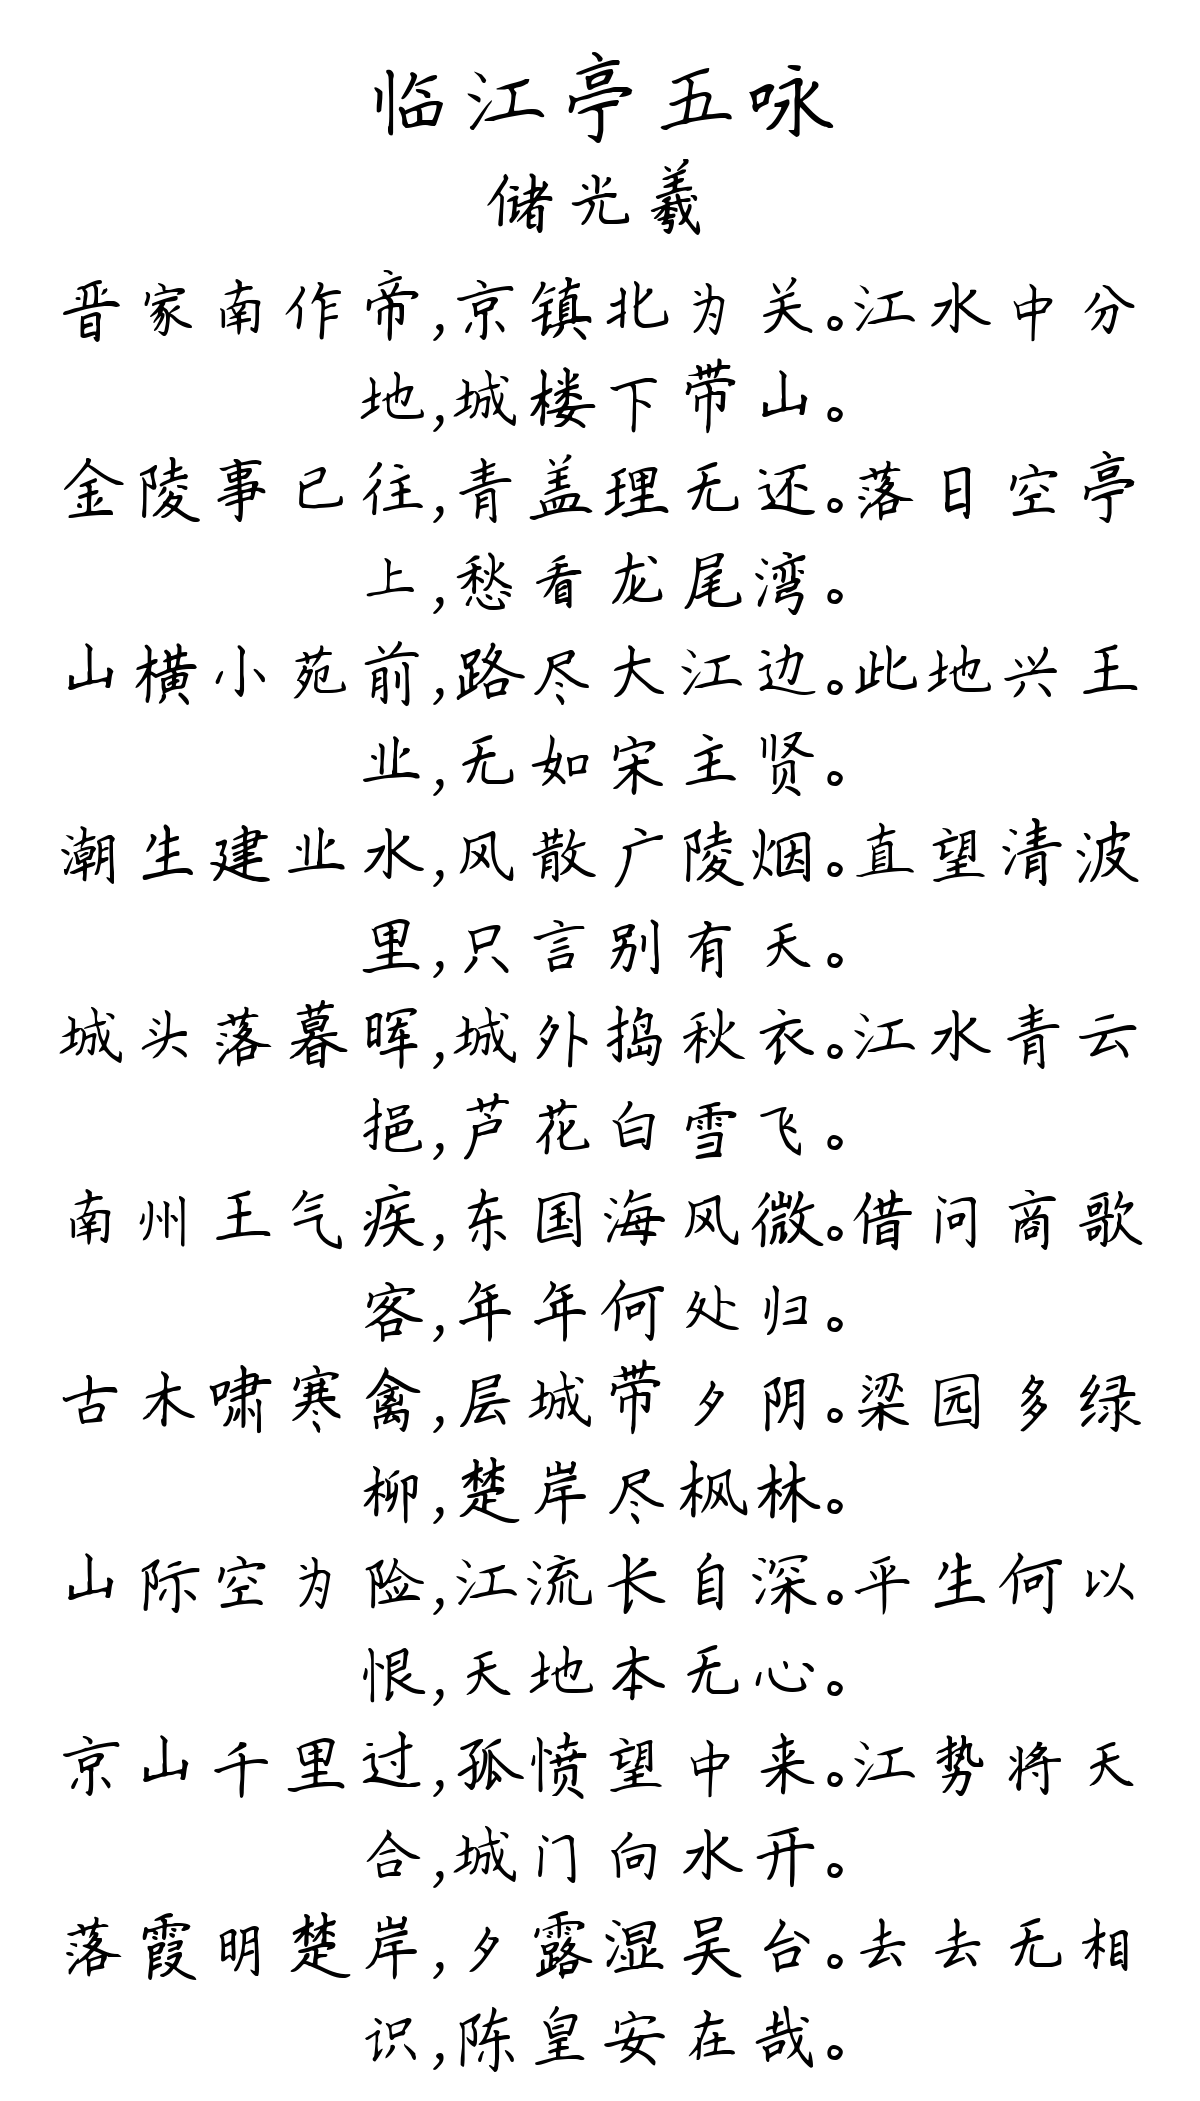 临江亭五咏
储光羲
晋家南作帝,京镇北为关。江水中分
地,城楼下带山。
金陵事已往,青盖理无还。落日空亭
上,愁看龙尾湾。
山横小苑前,路尽大江边。此地兴王
业,无如宋主贤。
潮生建业水,风散广陵烟。直望清波
里,只言别有天。
城头落暮晖,城外捣秋衣。江水青云
挹,芦花白雪飞。
南州王气疾,东国海风微。借问商歌
客,年年何处归。
古木啸寒禽,层城带夕阴。梁园多绿
柳,楚岸尽枫林。
山际空为险,江流长自深。平生何以
恨,天地本无心。
京山千里过,孤愤望中来。江势将天
合,城门向水开。
落霞明楚岸,夕露湿吴台。去去无相
识,陈皇安在哉。